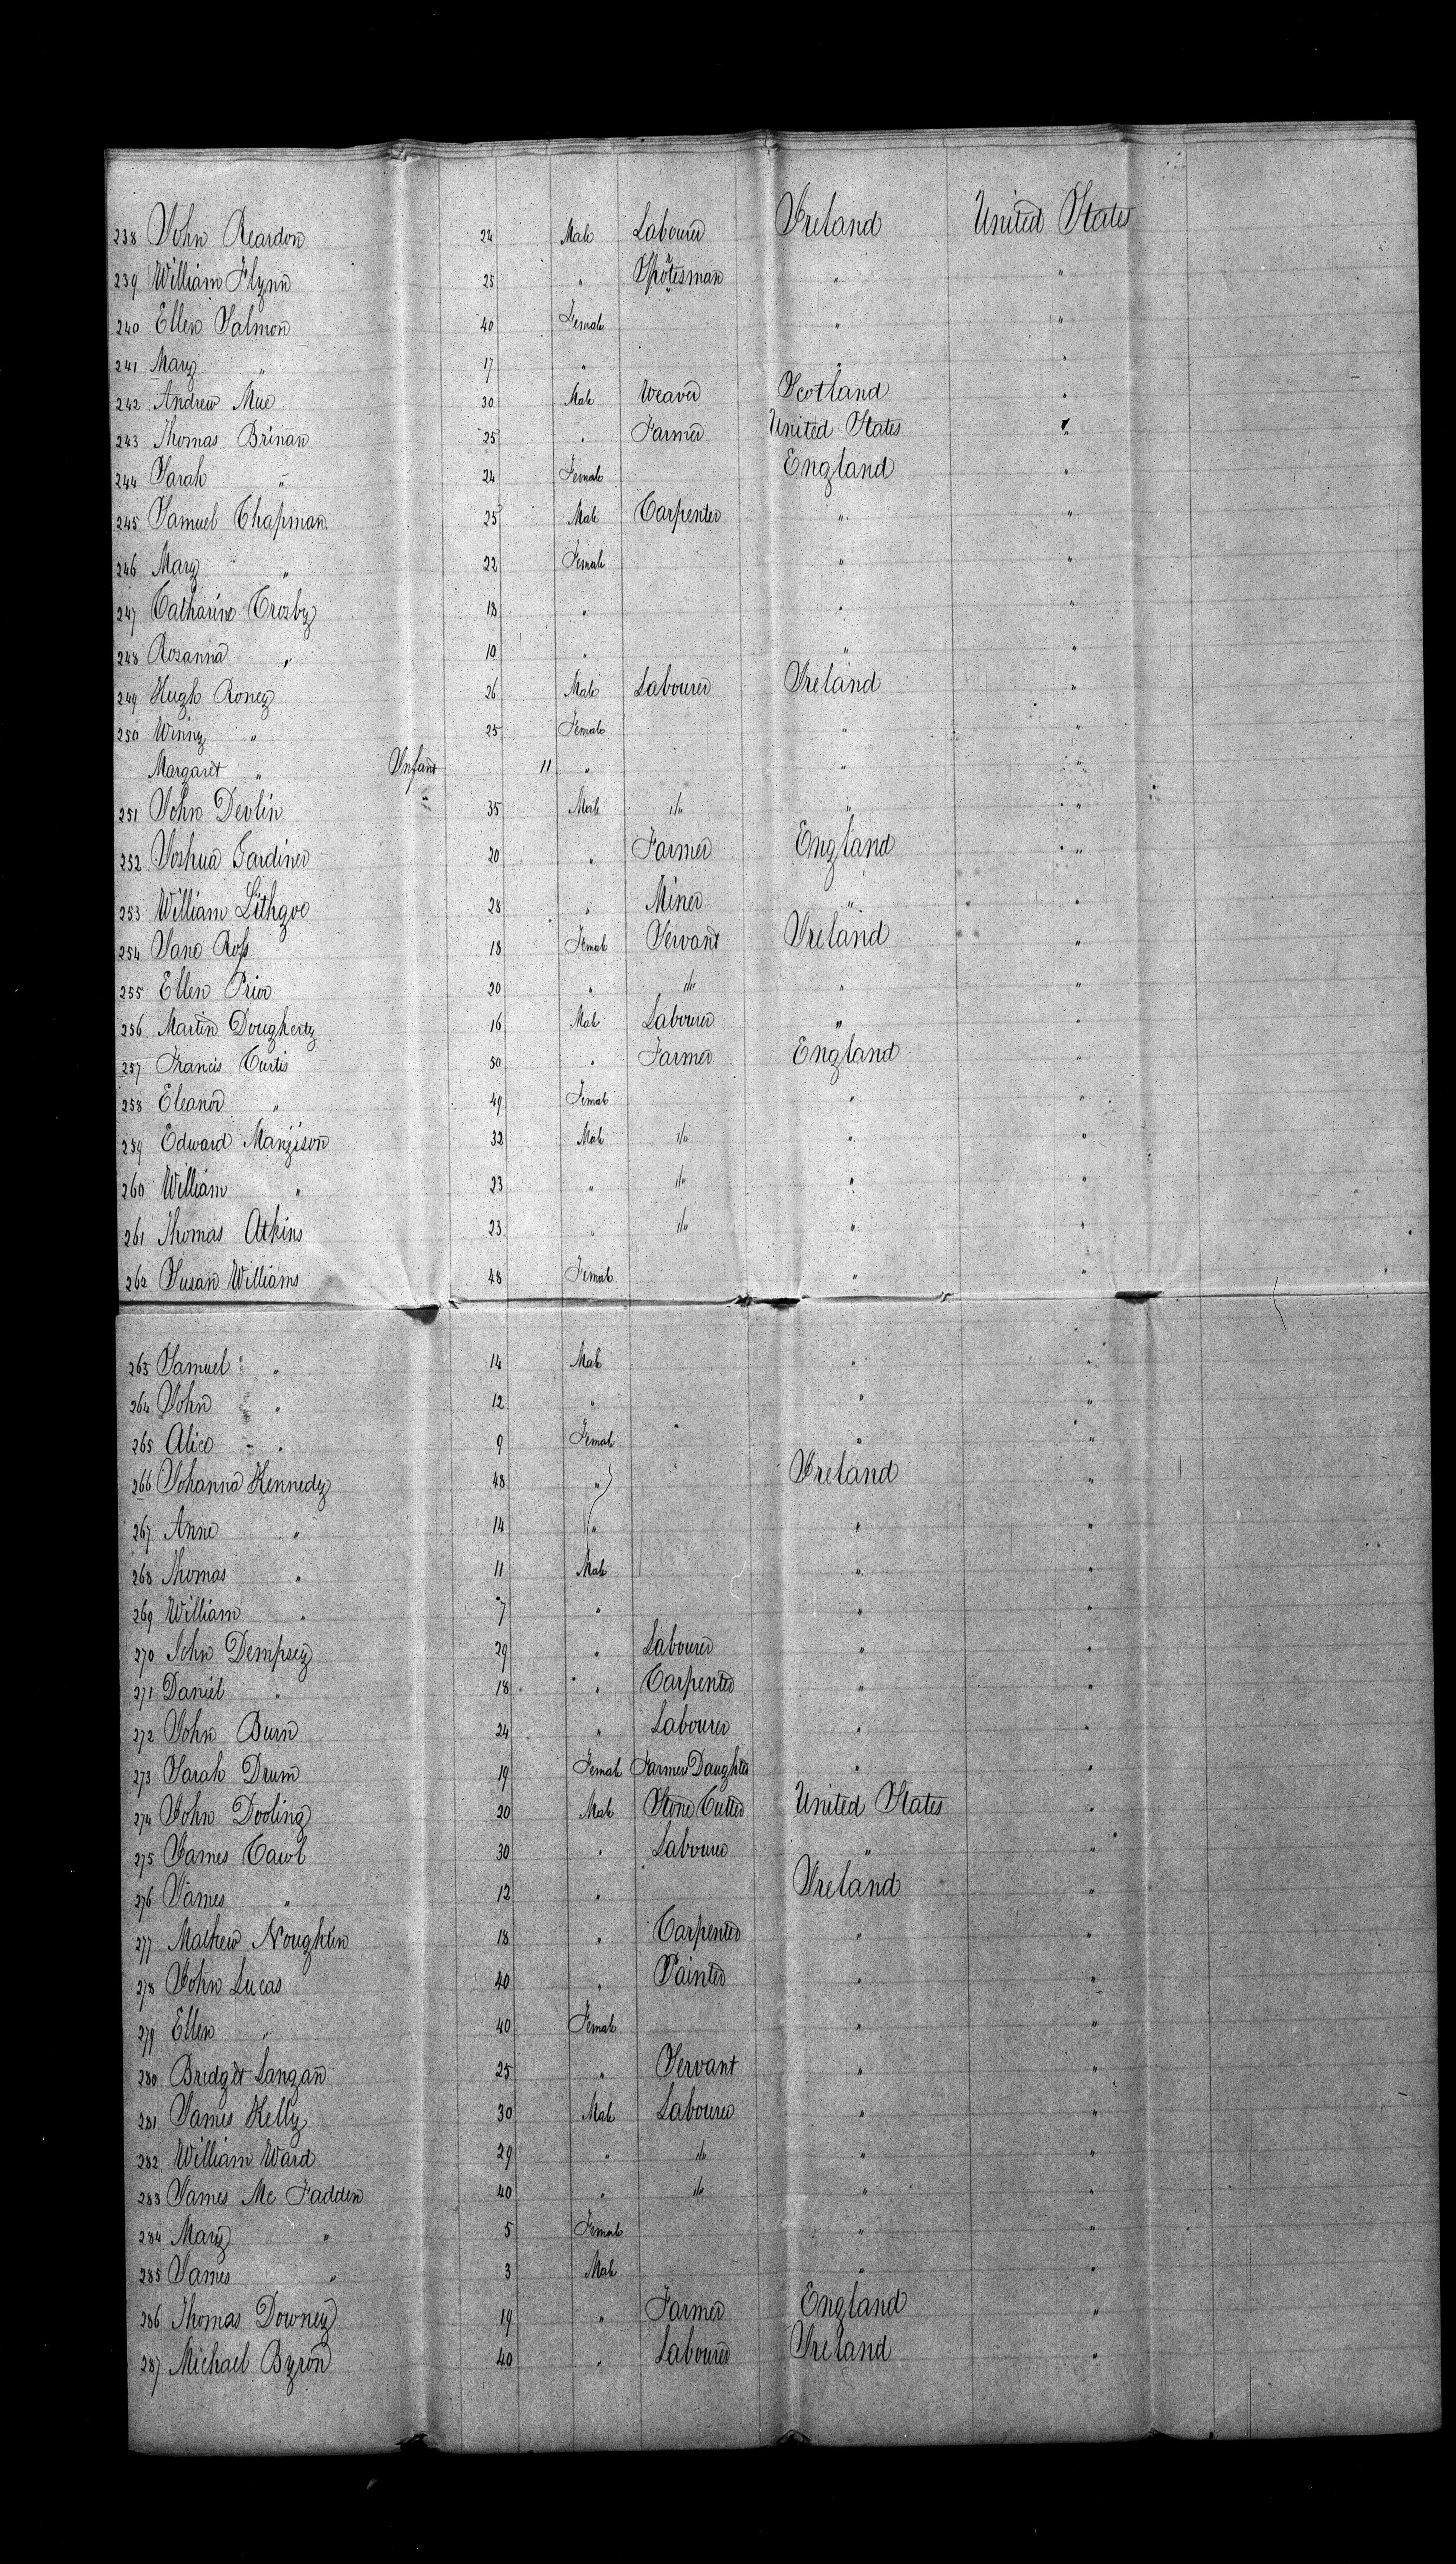 238 John Reardon 24 Male Labourer Ireland United States
239 William Flynn 25 " " "
240 Ellen Salmon 40 Female " "
241 Mary " 17 " " "
242 Andrew Mue 30 Male Weaver Scotland "
243 Thomas Brinan 25 " Farmer United States "
244 Sarah " 24 Female England "
245 Samuel Chapman 25 Male Carpenter " "
246 Mary " 22 Female " "
247 Catharine Crosby 18 " " "
248 Rosanna " 10 " " "
249 Hugh Roney 26 Male Labourer Ireland "
250 Winny " 25 Female " "
Margaret " Infant 11 " " "
251 John Devlin " 35 Male "/" " "
252 Joshua Gardiner 20 " Farmer England "
253 William Lithgoe 28 " Miner " "
254 Jane Ross 18 Female Servant Ireland "
255 Ellen Prior 20 " "/" " "
256 Martin Dougherty 16 Male Labourer " "
257 Francis Curtis 50 " Farmer England "
258 Eleanor " 49 Female " "
259 Edward Manjison 32 Male "/" " "
260 William " 23 " "/" " "
261 Thomas Atkins 23 " "/" " "
262 Susan Williams 48 Female " "
263 Samuel " 14 Male " "
264 John " 12 " " "
265 Alice " 9 Female " "
266 Johanna Kennedy 48 " Ireland "
267 Anne " 14 " " "
268 Thomas " 11 Male " "
269 William " 7 " " "
270 John Dempsey 29 " Labourer " "
271 Daniel " 18 " Carpenter " "
272 John Burn 24 " Labourer " "
273 Sarah Drum 19 Female Farmer Daughter " "
274 John Dooling 20 Male Stone Cutter United States "
275 James 30 " Labourer " "
276 James " 12 " Ireland "
277 Mathew Noughtin 18 " Carpenter " "
278 John Lucas 40 " Painter " "
279 Ellen " 40 Female " "
280 Bridget Langan 25 " Servant " "
281 James Kelly 30 Male Labourer " "
282 William Ward 29 " "/" " "
283 James Mc Fadden 40 " "/" " "
284 Mary " 5 Female " "
285 James " 3 Male " "
286 Thomas Downey 19 " Farmer England "
287 Michael Byron 40 " Labourer Ireland "